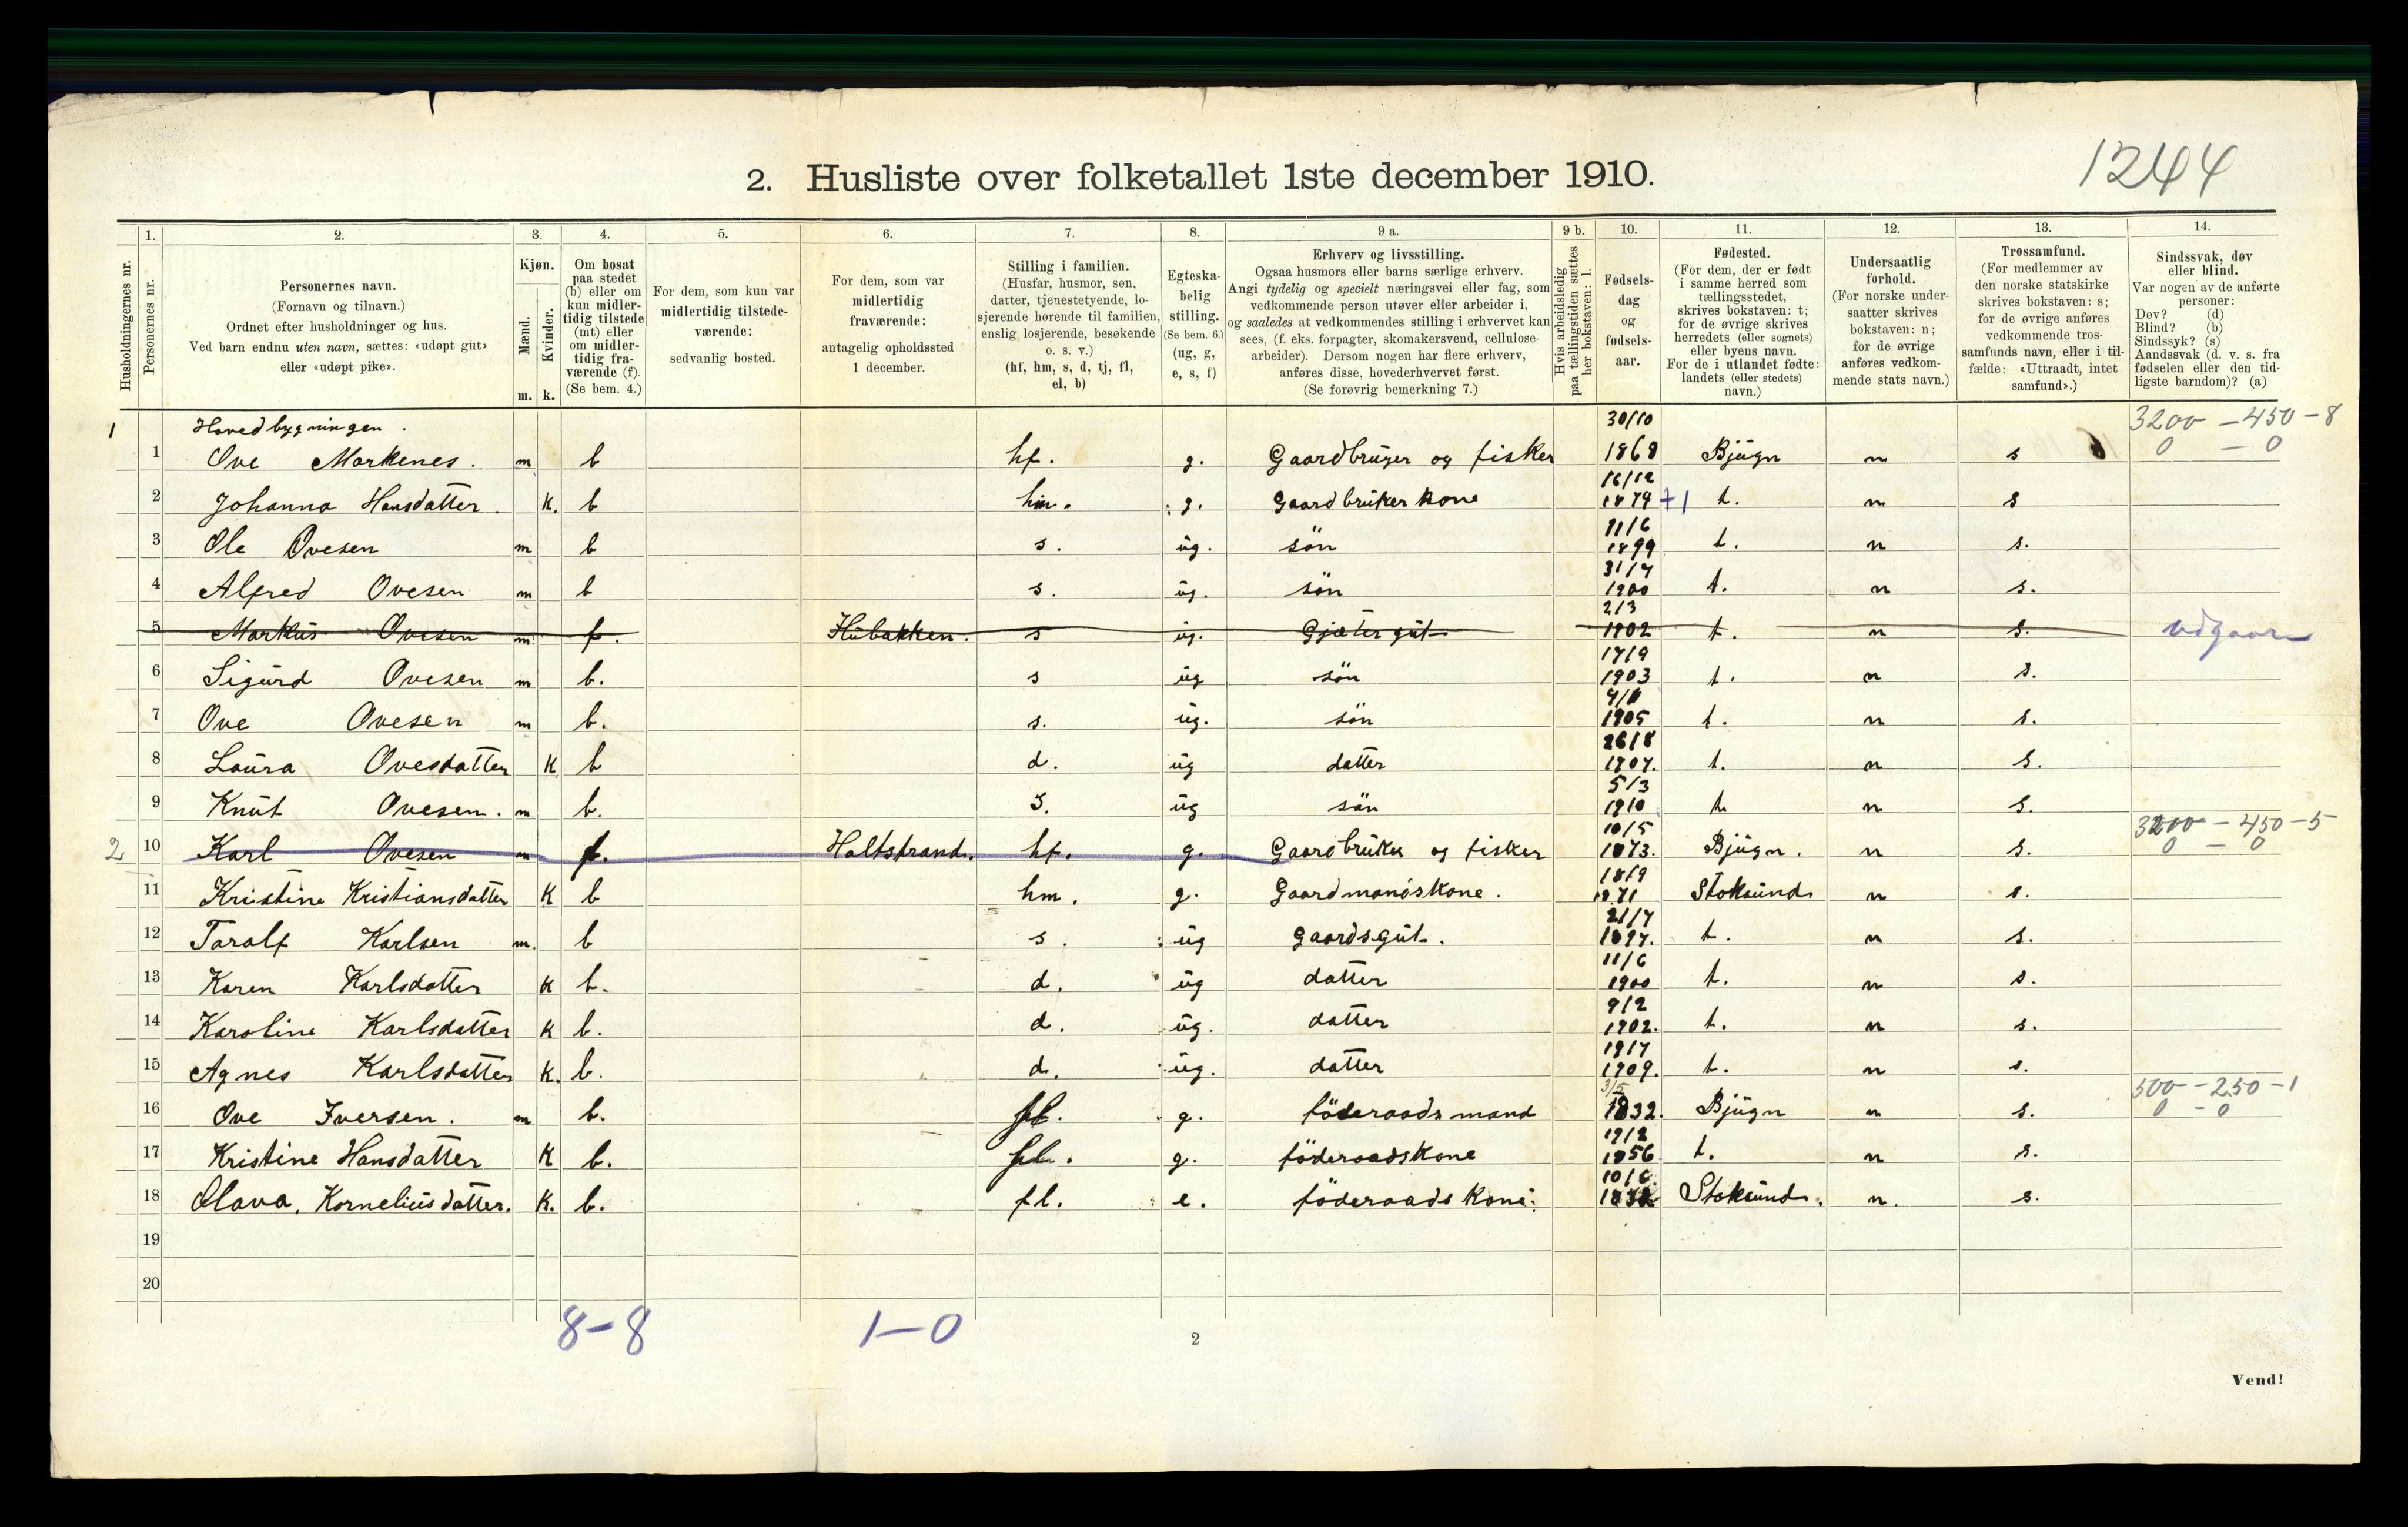 1244
2. Husliste over folketallet 1ste december 1910.
Husholdningernes nr.
1.
Personernes nr.
2.
Personernes navn.
(Fornavn og tilnavn.)
Ordnet efter husholdninger og hus.
Ved barn endnu uten navn, sættes: «udøpt gut»
eller «udøpt pike».
3.
Kjøn.
Mænd.
Kvinder.
m. k.
4.
Om bosat
paa stedet
(b) eller om
kun midler-
tidig tilstede
(mt) eller
om midler-
tidig fra-
værende (f).
(Se bem. 4.)
5.
For dem, som kun var
midlertidig tilstede-
værende:
sedvanlig bosted.
6.
For dem, som var
midlertidig
fraværende:
antagelig opholdssted
1 december.
7.
Stilling i familien.
(Husfar, husmor, søn,
datter, tjenestetyende, lo-
sjerende hørende til familien,
enslig losjerende, besøkende
o. s. v.)
(hf, hm, s, d, tj, fl,
el, b)
8.
Egteska-
belig
stilling.
(Se bem. 6.)
(ug, g,
e, s, f)
9 a.
Erhverv og livsstilling.
Ogsaa husmors eller barns særlige erhverv.
Angi tydelig og specielt næringsvei eller fag, som
vedkommende person utøver eller arbeider i,
og saaledes at vedkommendes stilling i erhvervet kan
sees, (f. eks. forpagter, skomakersvend, cellulose-
arbeider). Dersom nogen har flere erhverv,
anføres disse, hovederhvervet først.
(Se forøvrig bemerkning 7.)
9 b.
Hvis arbeidsledig
paa tællingstiden sættes
her bokstaven: l.
10.
Fødsels-
dag
og
fødsels-
aar.
11.
Fødested.
(For dem, der er født
i samme herred som
tællingsstedet,
skrives bokstaven: t;
for de øvrige skrives
herredets (eller sognets)
eller byens navn.
For de i utlandet fødte:
landets (eller stedets)
navn.)
12.
Undersaatlig
forhold.
(For norske under-
saatter skrives
bokstaven: n;
for de øvrige
anføres vedkom-
mende stats navn.)
13.
Trossamfund.
(For medlemmer av
den norske statskirke
skrives bokstaven: s;
for de øvrige anføres
vedkommende tros-
samfunds navn, eller i til-
fælde: «Uttraadt, intet
samfund».)
14.
Sindssvak, døv
eller blind.
Var nogen av de anførte
personer:
Døv? (d)
Blind? (b)
Sindssyk? (s)
Aandssvak (d. v. s. fra
fødselen eller den tid-
ligste barndom)? (a)
1 Hovedbygningen. 30/10 3200 - 450 - 8
1 Ove Markenes. m b hf. g. Gaardbruger og fisker 1869 Bjügn n s 0 - 0
16/12
2 Johanna Hansdatter. K. b hm. g. Gaardbrüker kone 1879 +1 t. n s
11/6
3 Ole Ovesen m b s. üg. sön 1899 t. n s.
31/7
4 Alfred Ovesen m b s. üg. sön 1900 t. n s.
2/3
5 Markus Ovesen m f. Hübakken. s üg. Gjæter güt 1902 t. n s. udgaar
17/9
6 Sigürd Ovesen m b. s üg sön 1903 t. n s.
7 Ove Ovesen m b. s. üg. sön 1905 t. n s.
26/8
8 Laüra Ovesdatter K b d. üg datter 1907. t. n s.
5/3
9 Knüt Ovesen. m b. s. üg sön 1910 t n s.
10/5 3200 - 450 - 5
2 10 Karl Ovesen m f. Holtstrand. hf. g. Gaardbrüker og fisker 1873. Bjügn. n s. 0 - 0
18/9
11 Kristine Kristiansdatter K b hm. g. Gaardmandskone. 1871 Stoksund n s.
21/7
12 Taralf Karlsen m. b s. üg gaardsgüt. 1897. t. n s.
11/6
13 Karen Karlsdatter K b. d. üg datter 1900 t. n s.
9/2
14 Karoline Karlsdatter K b. d. üg. datter 1902. t. n s.
19/7
15 Agnes Karlsdatter K. b. d. üg. datter 1909. t. n s.
3/5 500 - 250 - 1
16 Ove Iversen. m b. g. föderaads mand 1832. Bjügn n s. 0 - 0
19/2
17 Kristine Hansdatter K b. g. föderaadskone 1856 t. n s.
18 Olava. Korneliüsdatter. K. b. fl. e. föderaads kone. Stoksünd. n. s.
19
20
8-8 1-0
2
Vend!